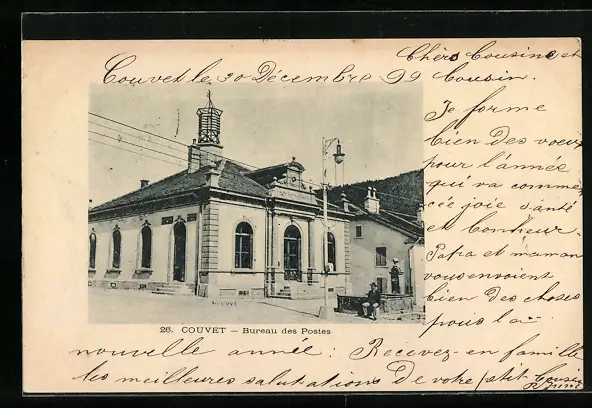 Couvet le 30 Décembre 99
Chers Cousine et
Cousin.
Je forme
bien des voeux
pour l'année
qui va commen
cée joie santé
et bonheur.
Papa et maman
vous envoient
bien des choses
pour la
nouvelle année. Recevez-en famille
les meilleures salutations De votre petit Cousin
26. COUVET – Bureau des Postes